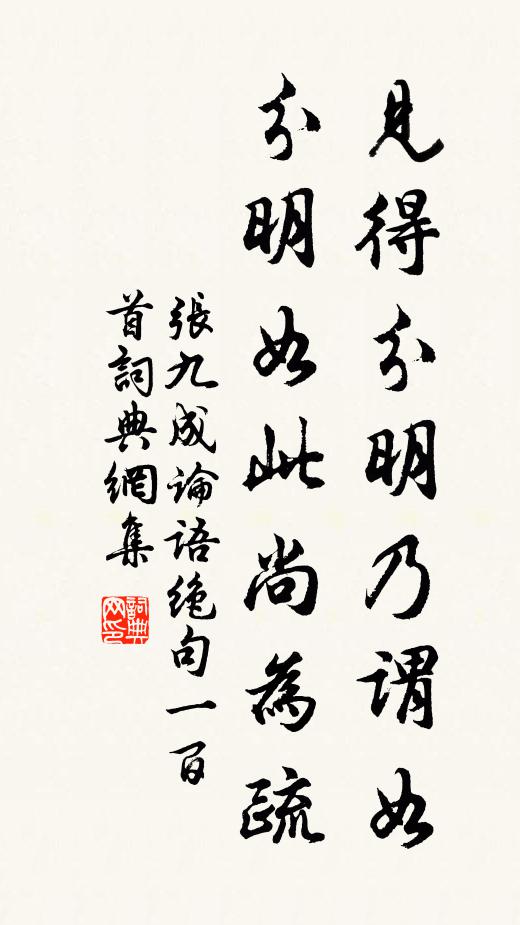 見得分明乃謂如
分明如此尚為疏
張九成論語绝句一百
首詞典網集
詞典网印